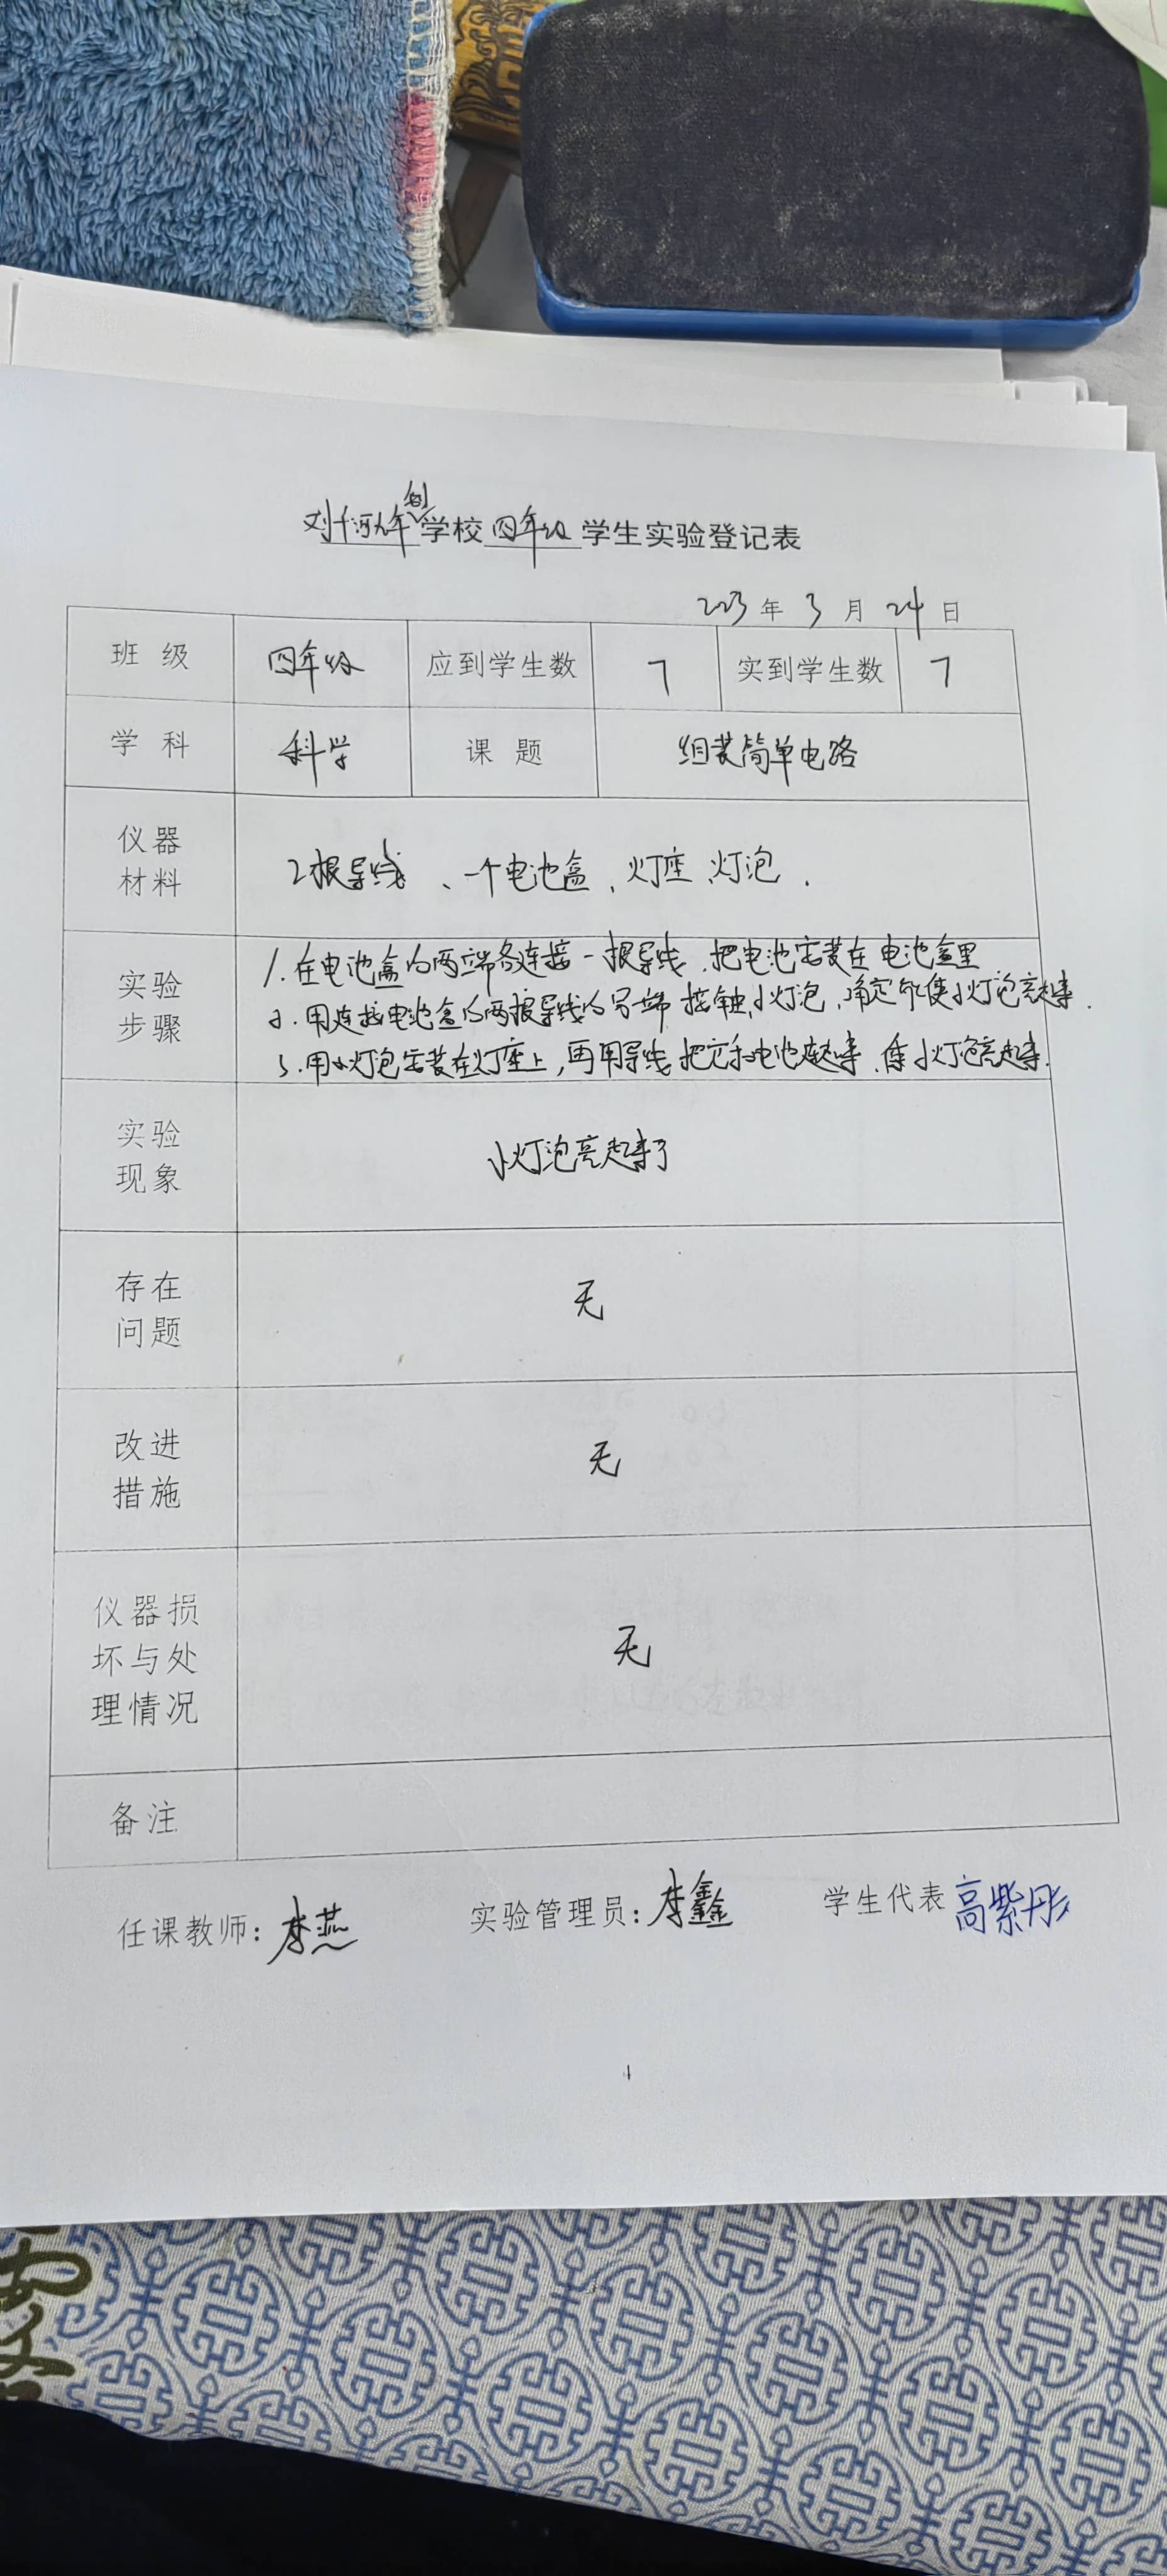 刘千河九年制学校四年级学生实验登记表
2023年3月24日
班级 四年级 应到学生数 7 实到学生数 7
学科 科学 课题 组装简单电路
仪器材料 2根导线、一个电池盒、灯座、灯泡.
实验步骤 1.在电池盒的两端各连接一根导线,把电池安装在电池盒里
2.用连接电池盒的两根导线的另一端接触小灯泡,确定能使小灯泡亮起来.
3.用小灯泡安装在灯座上,再用导线把它和电池连起来,使小灯泡亮起来.
实验现象 小灯泡亮起来了
存在问题 无
改进措施 无
仪器损坏与处理情况 无
备注
任课教师:李燕 实验管理员:李鑫 学生代表 高紫彤
1